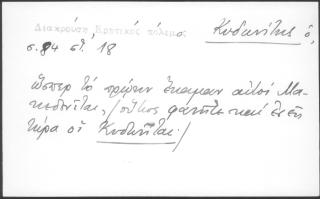 Διακρούση, Κρητικός πόλεμος Κυδωνίτης ὁ,
σ. 84 στ. 18
ὥσπερ τὸ πρῶτον ἔκαμαν αὐτοὶ Μα-
κεδονῖται, /οὕτως φανῆτε καὶ ἐσεῖς
τώρα οἱ Κυδωνῖται./